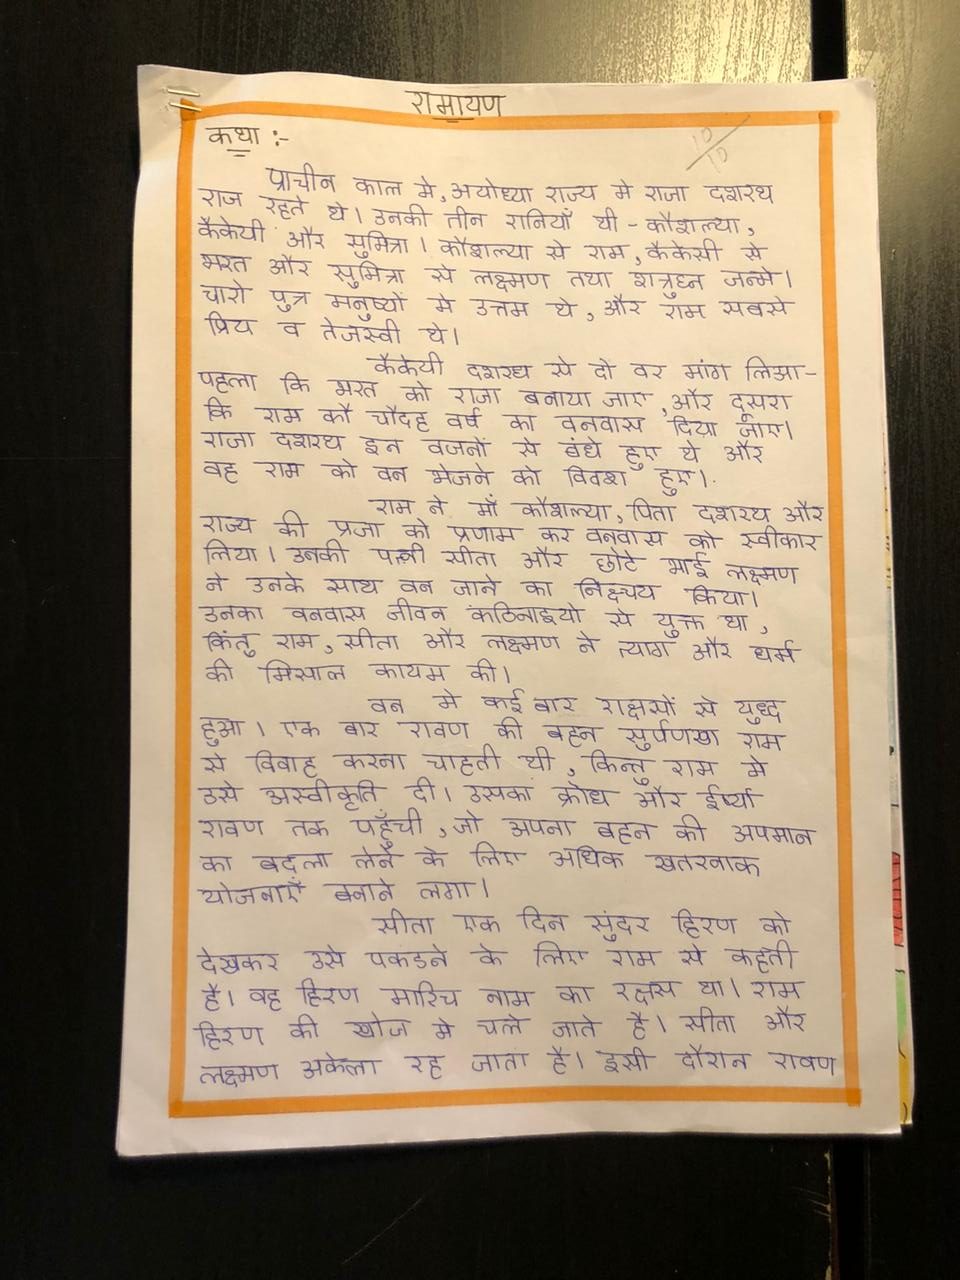 रामायण
10/10
कथा :-
प्राचीन काल मे, अयोध्या राज्य मे राजा दशरथ
राज रहते थे। उनकी तीन रानियाँ थी - कौशल्या,
कैकेयी और सुमित्रा। कौशल्या से राम, कैकेसी से
भरत और सुमित्रा से लक्ष्मण तथा शत्रुघ्न जन्मे।
चारो पुत्र मनुष्यों मे उत्तम थे, और राम सबसे
प्रिय व तेजस्वी थे।
कैकेयी दशरथ से दो वर मांग लिआ-
पहला कि भरत को राजा बनाया जाए, और दूसरा
कि राम कौ चौदह वर्ष का वनवास दिया जाए।
राजा दशरथ इन वजनों से बंधे हुए थे और
वह राम को वन भेजने को विवश हुए।
राम ने माँ कौशल्या, पिता दशरथ और
राज्य की प्रजा को प्रणाम कर वनवास को स्वीकार
लिया। उनकी पत्नी सीता और छोटे भाई लक्ष्मण
ने उनके साथ वन जाने का निश्चय किया।
उनका वनवास जीवन कठिनाइयो से युक्त था,
किंतु राम, सीता और लक्ष्मण ने त्याग और धर्म
की मिसाल कायम की।
वन मे कई बार राक्षसों से युध्द
हुआ। एक बार रावण की बहन सुर्पणखा राम
से विवाह करना चाहती थी, किन्तु राम मे
उसे अस्वीकृति दी। उसका क्रोध और ईर्ष्या
रावण तक पहुँची, जो अपना बहन की अपमान
का बदला लेने के लिए अधिक खतरनाक
योजनाएँ बनाने लगा।
सीता एक दिन सुंदर हिरण को
देखकर उसे पकडने के लिए राम से कहती
है। वह हिरण मारिच नाम का रक्षस था। राम
हिरण की खोज मे चले जाते है। सीता और
लक्ष्मण अकेला रह जाता है। इसी दौरान रावण